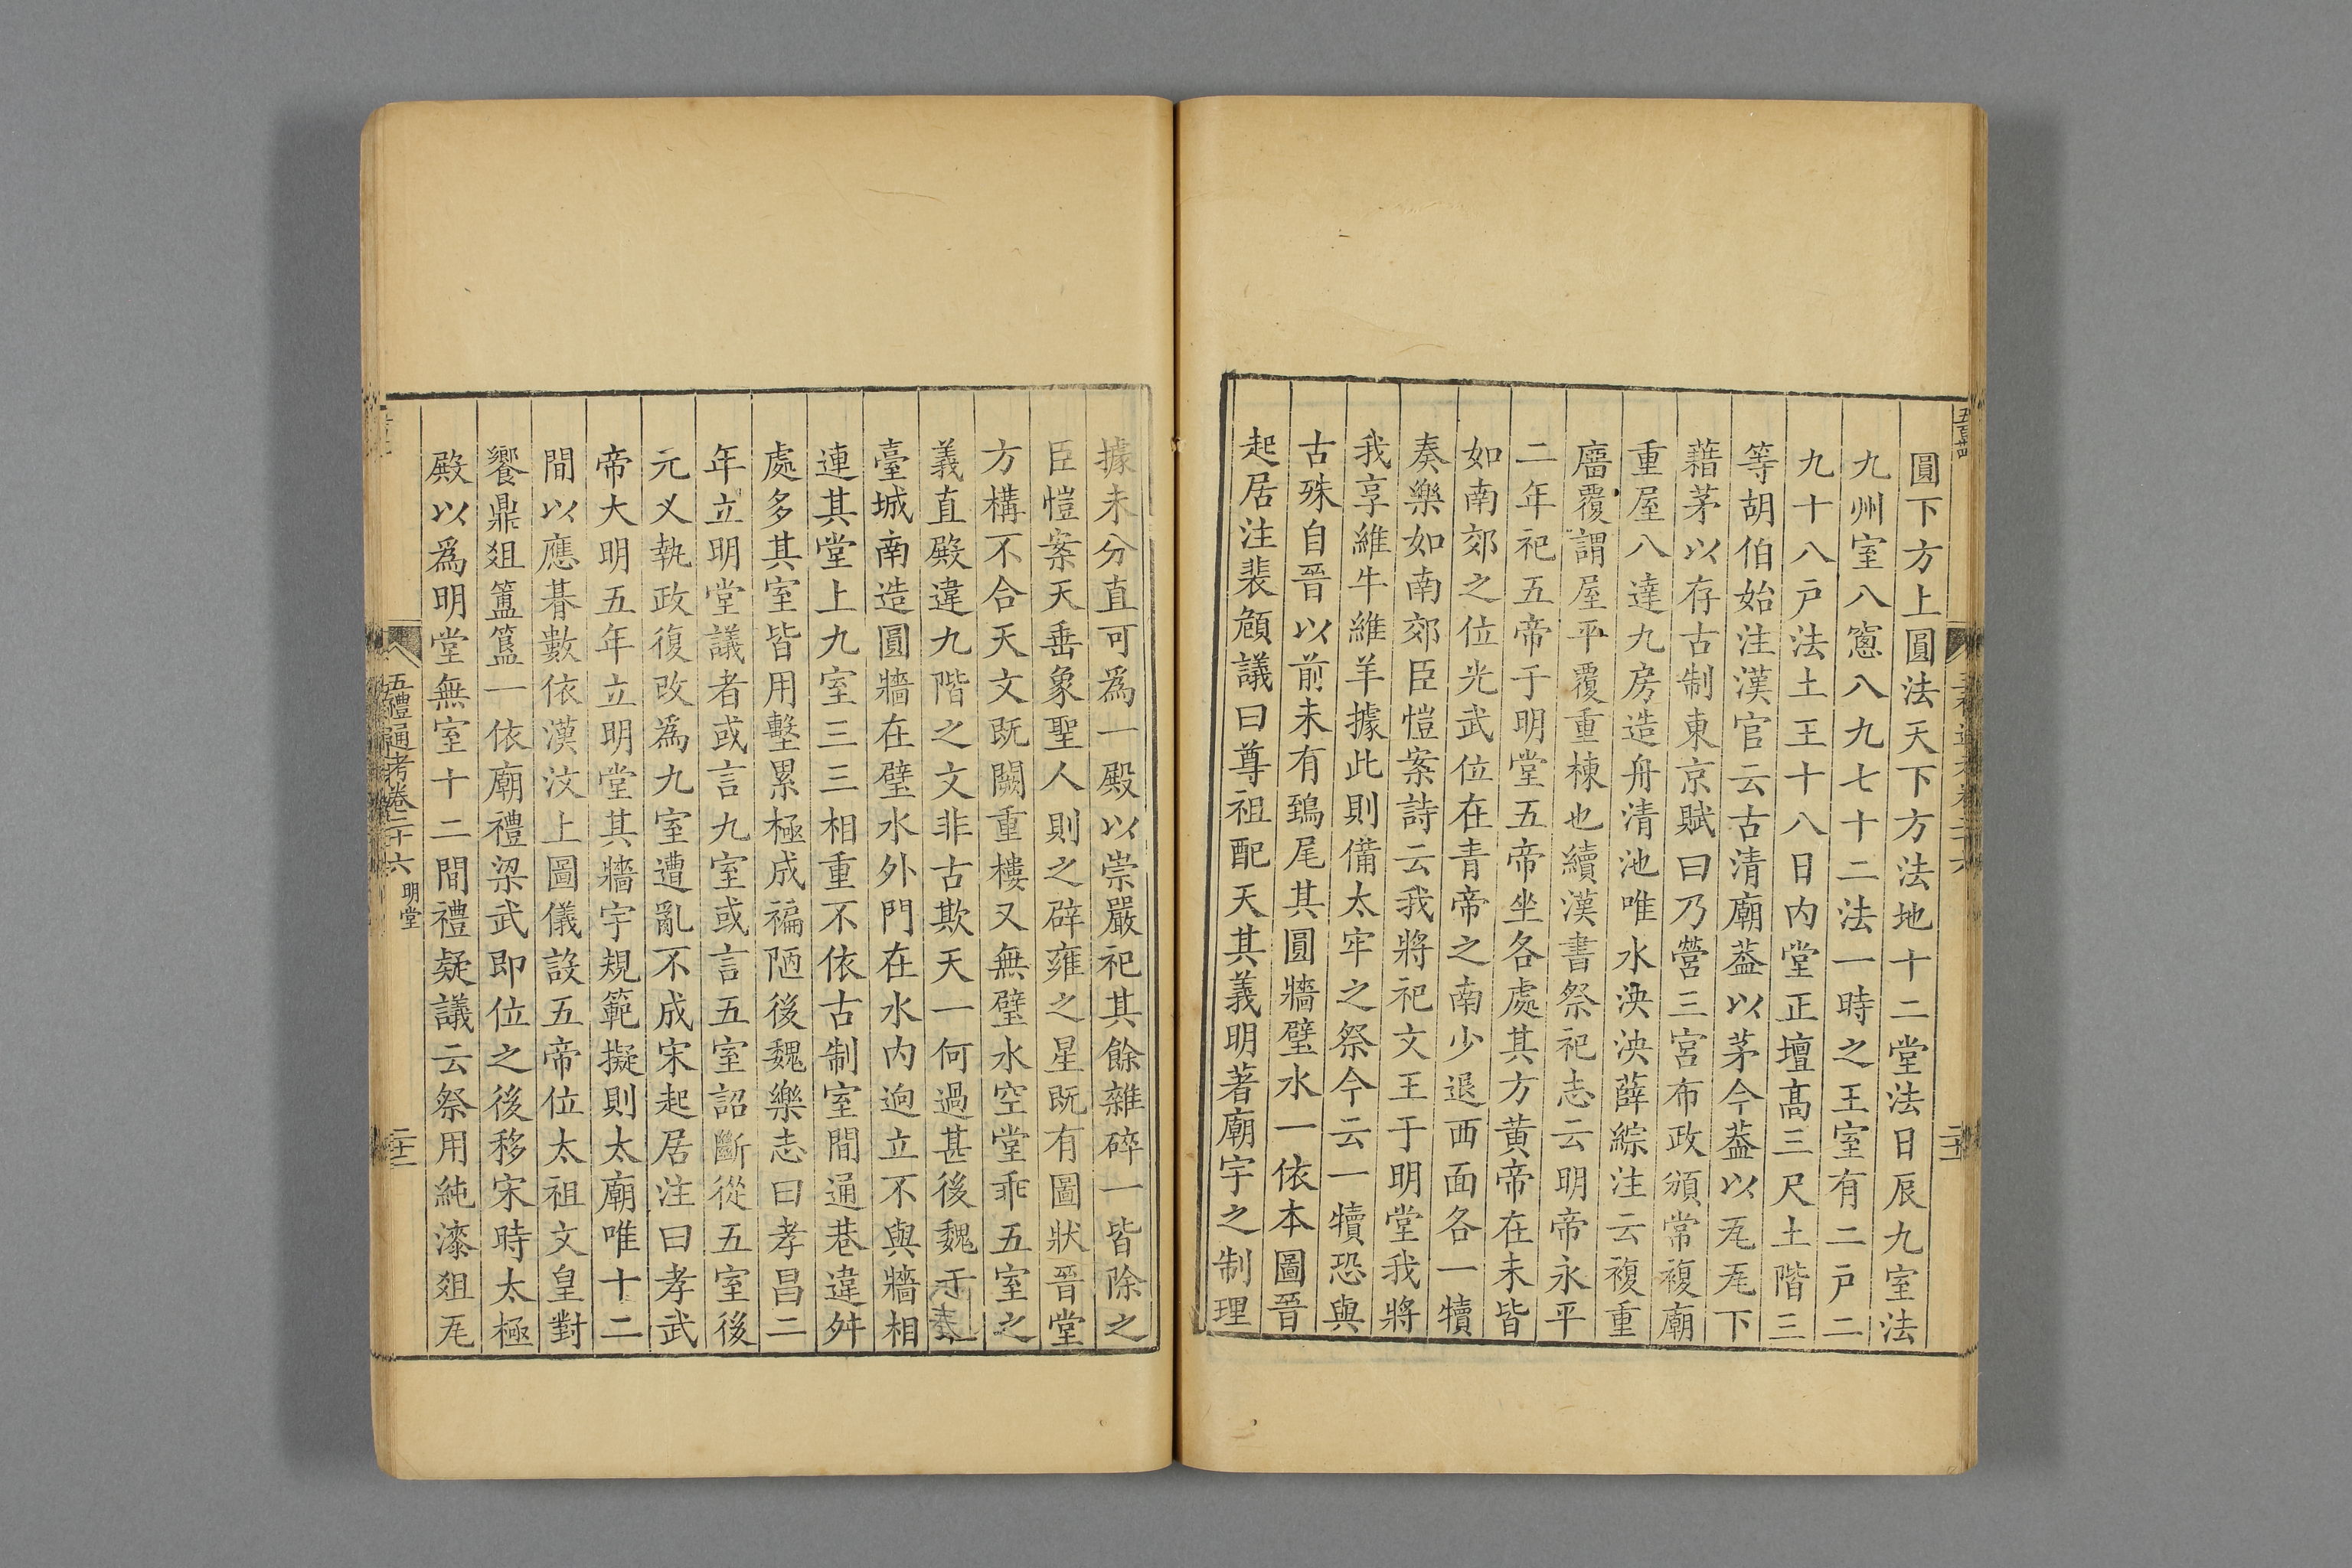 圓下方上圓法天下方法地十二堂法日辰九室法
九州室八窻八九七十二法一時之王室有二戸二
九十八戸法土王十八日内堂正壇髙三尺土階三
等胡伯始注漢官云古清廟葢以茅今葢以㼚㼚下
藉茅以存古制東京賦曰乃營三宮布政頒常複廟
重屋八達九房造舟清池唯水泱泱薛綜注云複重
廇覆謂屋平覆重棟也續漢書祭祀志云明帝永平
二年祀五帝于明堂五帝坐各處其方黄帝在未皆
如南郊之位光武位在青帝之南少退西面各一犢
奏樂如南郊臣愷案詩云我將祀文王于明堂我將
我享維牛維羊據此則備太牢之祭今云一犢恐與
古殊自晉以前未有鵄尾其圓牆璧水一依本圖晉
起居注裴頠議曰尊祖配天其義明著廟宇之制理
據未分直可爲一殿以崇嚴祀其餘雜碎一皆除之
臣愷案天垂象聖人則之辟雍之星既有圖狀晉堂
方構不合天文既闕重樓又無璧水空堂乖五室之
義直殿違九階之文非古欺天一何過甚後魏于
臺城南造圓牆在璧水外門在水内逈立不與牆相
連其堂上九室三三相重不依古制室間通巷違舛
處多其室皆用墼累極成褊陋後魏樂志曰孝昌二
年立明堂議者或言九室或言五室詔斷從五室後
元乂執政復改爲九室遭亂不成宋起居注曰孝武
帝大明五年立明堂其牆宇規範擬則太廟唯十二
間以應朞數依漢汶上圖儀設五帝位太祖文皇對
饗鼎俎簠簋一依廟禮梁武即位之後移宋時太極
殿以爲明堂無室十二間禮疑議云祭用純漆俎㼚
五禮通考卷二十六 明堂